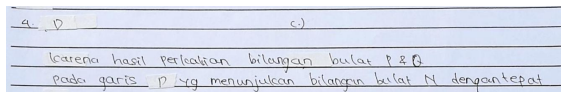 4. D C.)
karena hasil perkalian bilangan bulat P & Q
pada garis P yg menunjukan bilangan bulat N dengan tepat